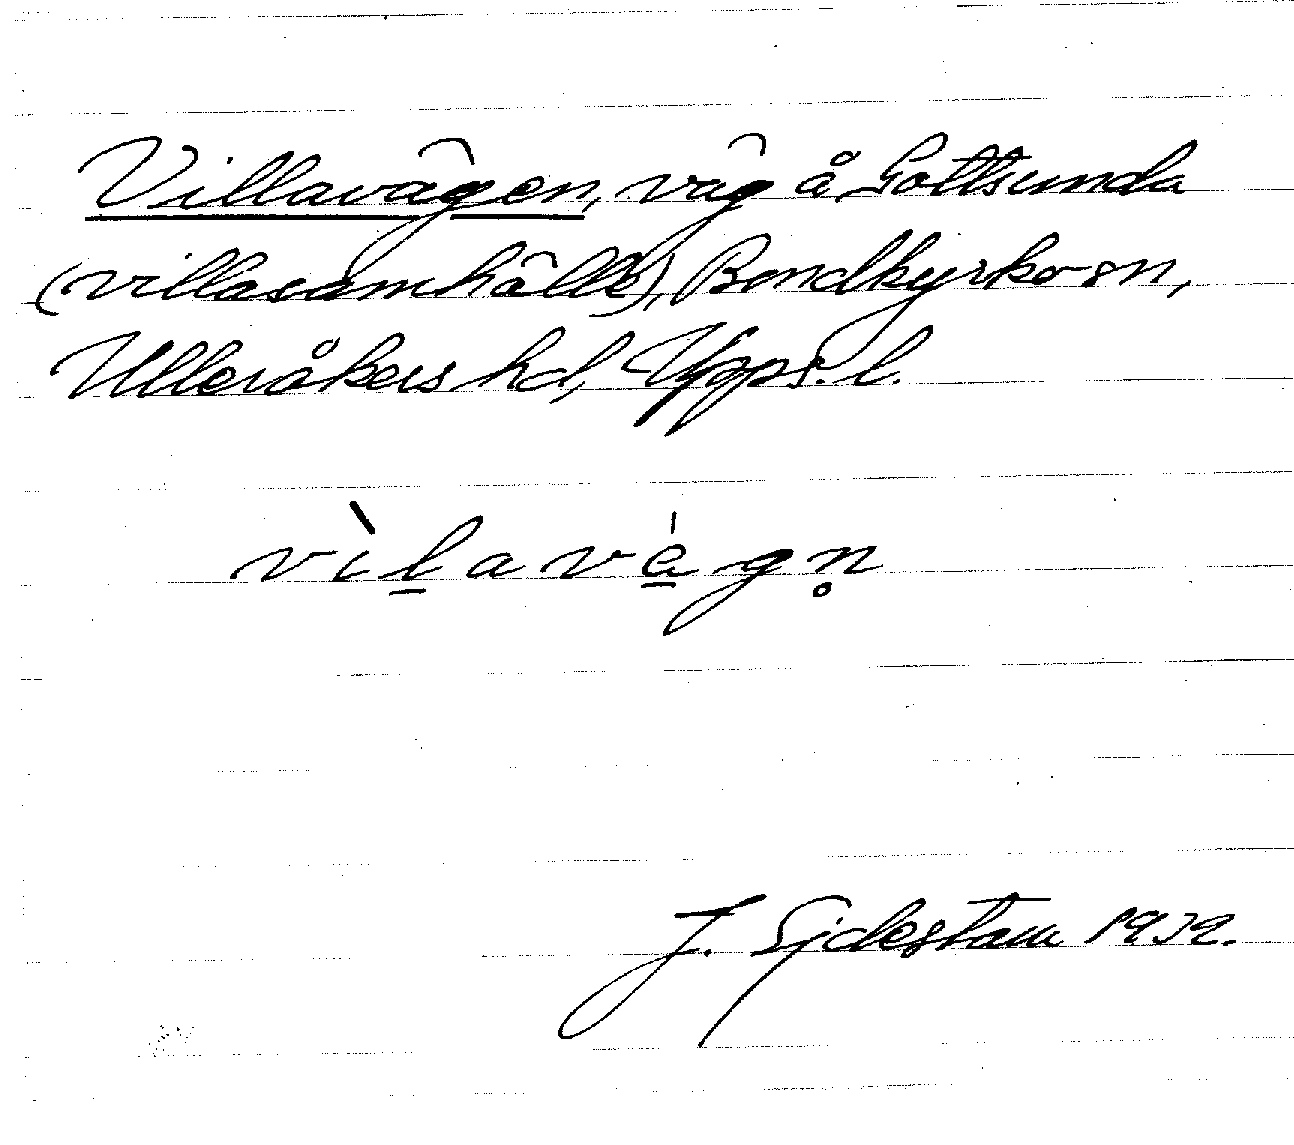 Villavägen, väg å Gottsunda
(villasamhälle), Bondkyrko sn,
Ulleråkers hd, Upps. l.
vìl̲avè̲gn̥
J. Sjdestam 1932.